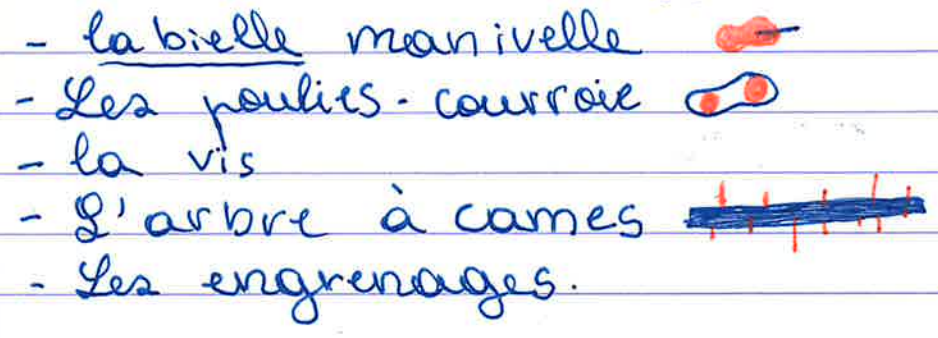 - la bielle manivelle
- Les poulies-courroie
- la vis
- L'arbre à cames
- Les engrenages.